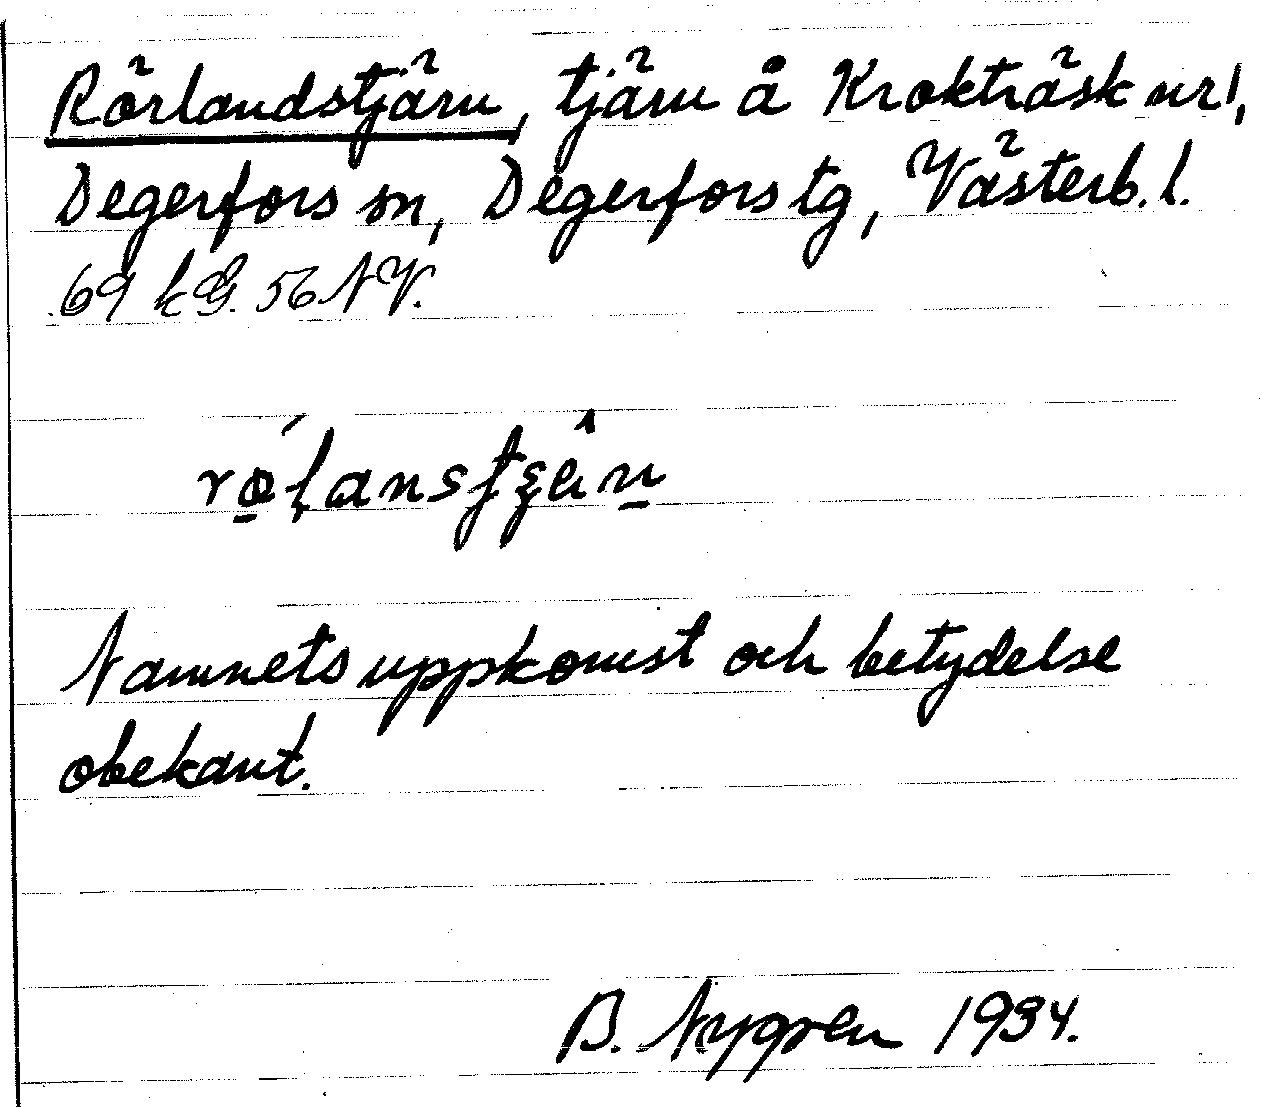 Rörlandstjärn, tjärn å Krokträsk nr 1,
Degerfors sn, Degerfors tg, Västerb. l.
69 kG. 56 NV.
Namnets uppkomst och betydelse
obekant.
B. Nygren 1934.